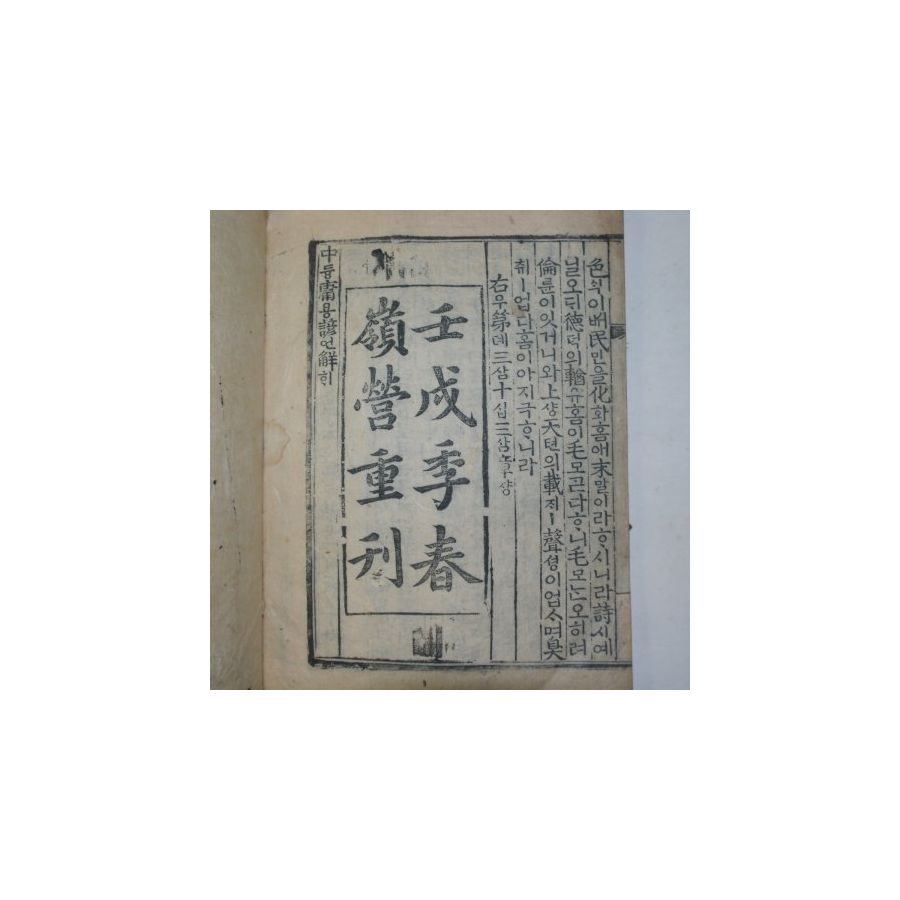 色식이배民민을化화홈애末말이라ᄒᆞ시니라詩시예
닐오ᄃᆡ德덕의輶유홈이毛모ᄀᆞᆮ다ᄒᆞ니毛모ᄂᆞᆫ오히려
倫륜이잇거니와上샹天텬의載ᄌᆡㅣ聲셩이업스며臭
취ㅣ업다홈이아지극ᄒᆞ니라
右우第뎨三삼十십三삼章쟝
壬戌季春
嶺營重刊
中듕庸용諺언解ᄒᆡ